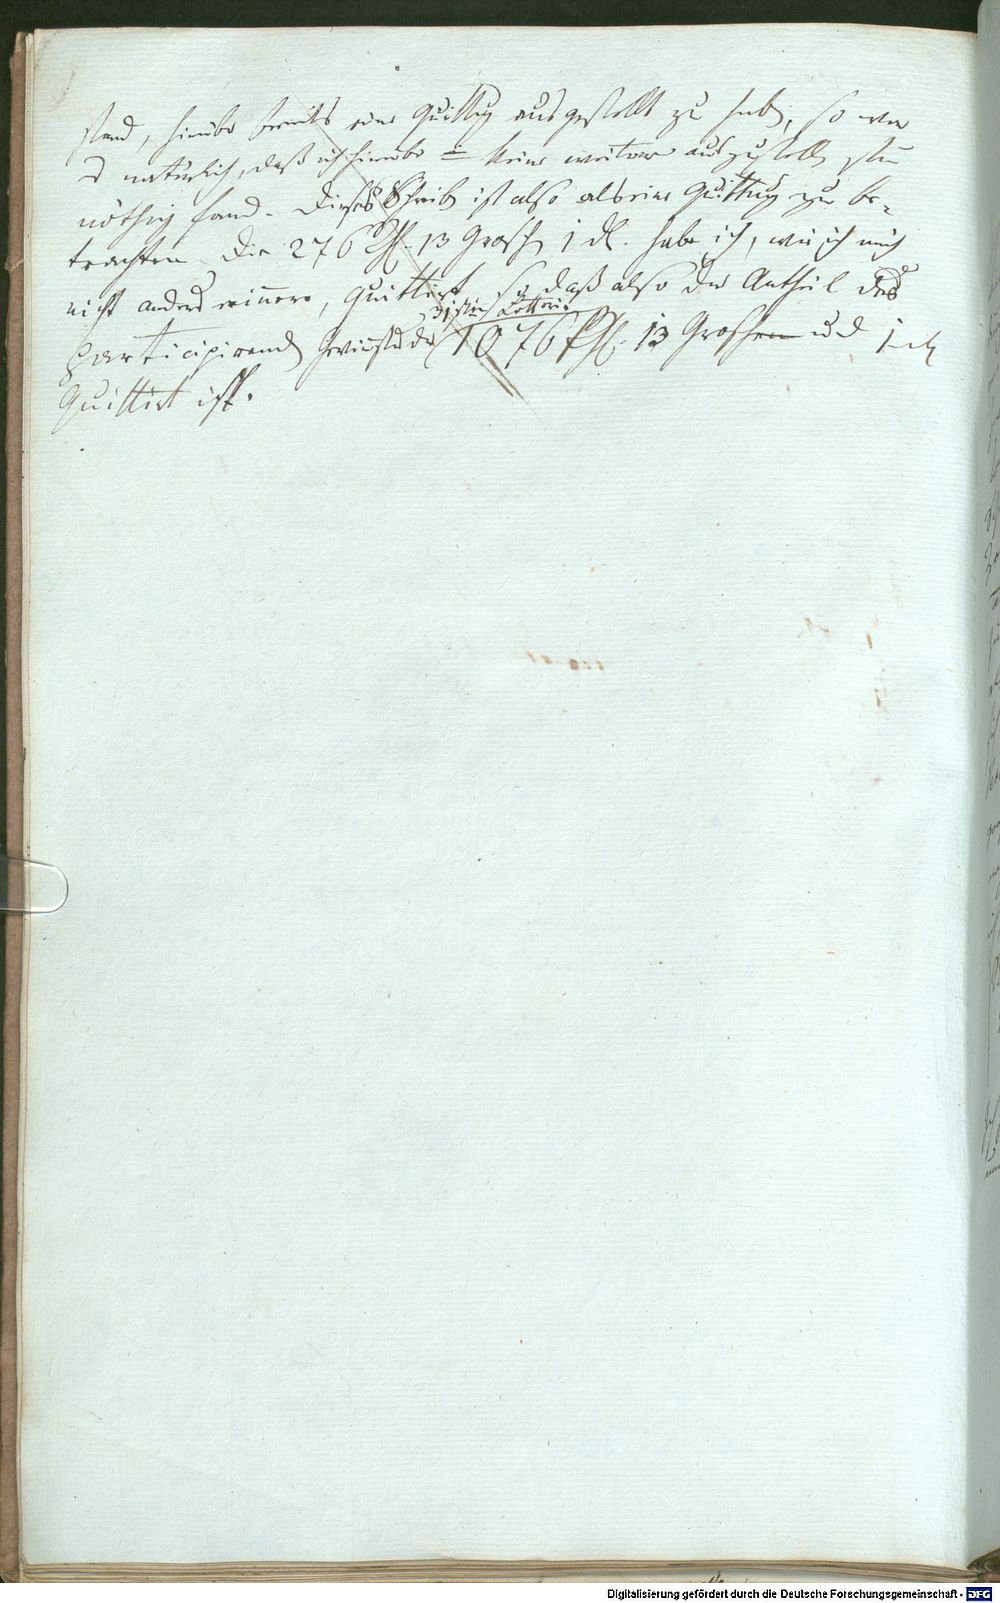 stand, hierüber bereits eine Quittung ausgestellt zu haben, so war
es natürlich, daß ich hierüber keine weitere auszustellen für
nöthig fand. Dieses Schreiben ist also als eine Quittung zu be-
trachten. Die 276 Rthl. 13 Groschen 1 dl. habe ich, wie ich mich
nicht anders erinnere, Quittirt, so daß also der Antheil des
31sten Lotterie
participirenden Gewinnstes der 1076 Rthl. 13 Groschen und 1
Quittirt ist.
Digitalisierung gefördert durch die Deutsche Forschungsgemeinschaft - DFG